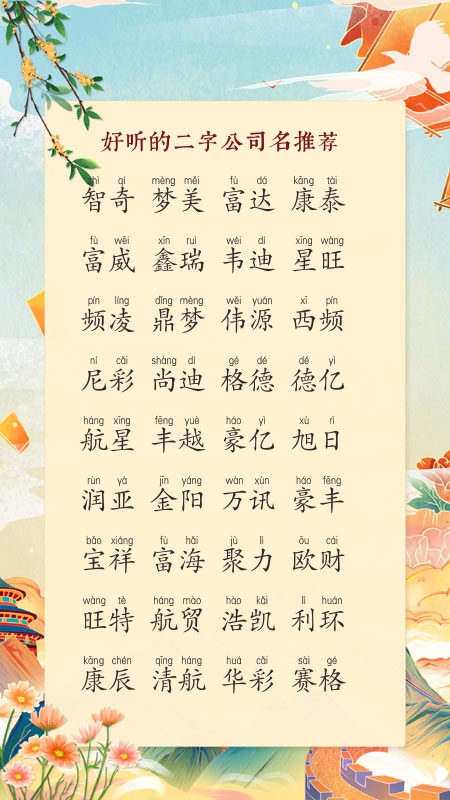 好听的二字公司名推荐
zhì qí mèng měi fù dá kāng tài
智奇 梦美 富达 康泰
fù wēi xīn ruì wéi dí xīng wàng
富威 鑫瑞 韦迪 星旺
pín líng dǐng mèng wěi yuán xī pín
频凌 鼎梦 伟源 西频
ní cǎi shàng dí gé dé dé yì
尼彩 尚迪 格德 德亿
háng xīng fēng yuè háo yì xù rì
航星 丰越 豪亿 旭日
rùn yà jīn yáng wàn xùn háo fēng
润亚 金阳 万讯 豪丰
bǎo xiáng fù hǎi jù lì ōu cái
宝祥 富海 聚力 欧财
wàng tè háng mào hào kǎi lì huán
旺特 航贸 浩凯 利环
kāng chén qīng háng huá cǎi sài gé
康辰 清航 华彩 赛格